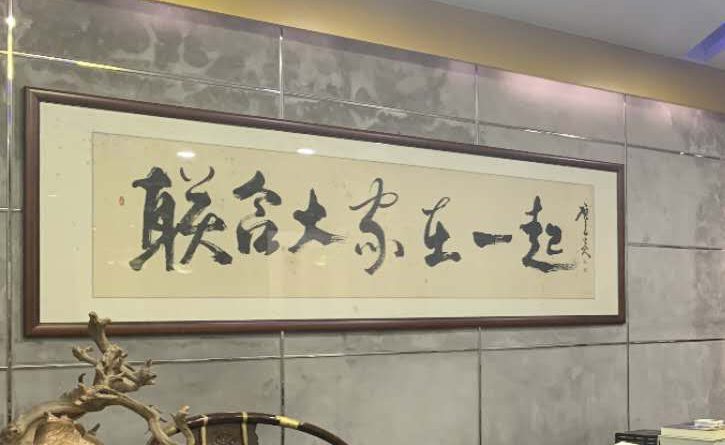 联合大家在一起